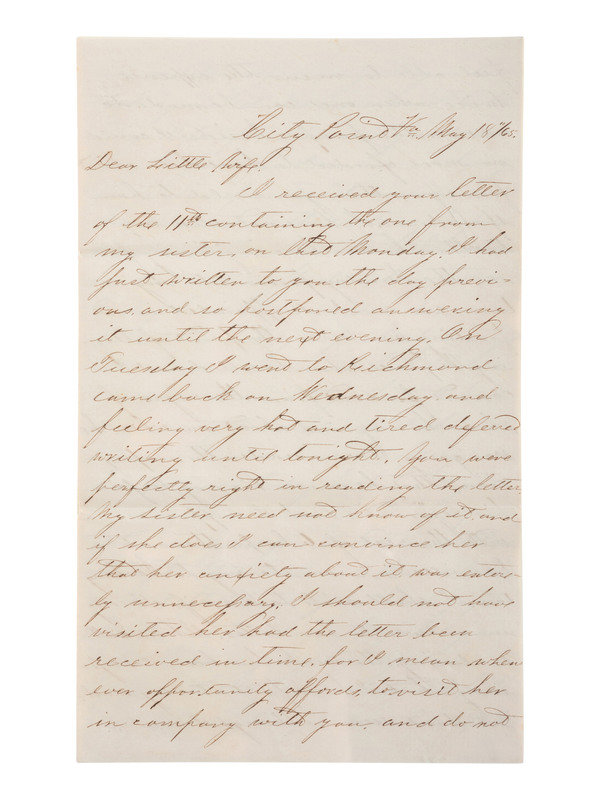 City Point Va. May 18th/65.
Dear Little Wife.
I received your letter
of the 11th containing the one from
my sister, on last Monday. I had
just written to you the day previ-
ous, and so postponed answering
it until the next evening. On
Tuesday I went to Richmond
came back on Wednesday and
feeling very hot and tired defered
writing until tonight. You were
perfectly right in reading the letter,
my sister need not know of it and
if she does I can convince her
that her anxiety about it was entire-
ly unnecessary. I should not have
visited her had the letter been
received in time, for I mean when
ever opportunity affords, to visit her
in company with you. and do not